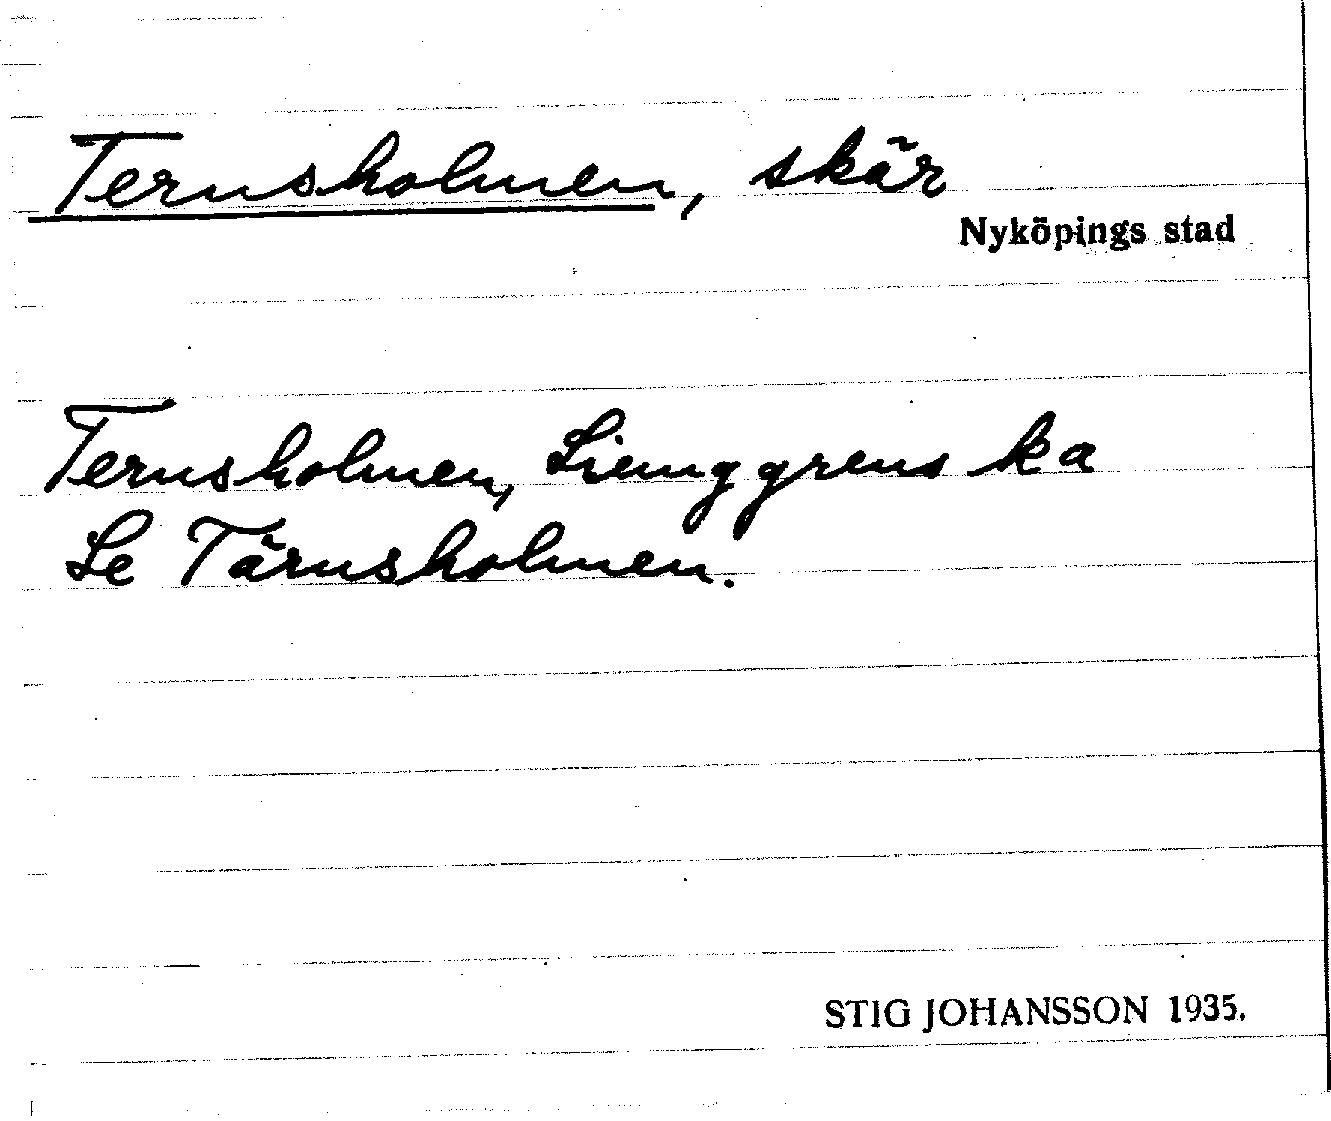 Ternsholmen, skär
Nyköpings stad
Ternsholmen, Liemggrens ka
Se Tärnsholmen.
STIG JOHANSSON 1935.